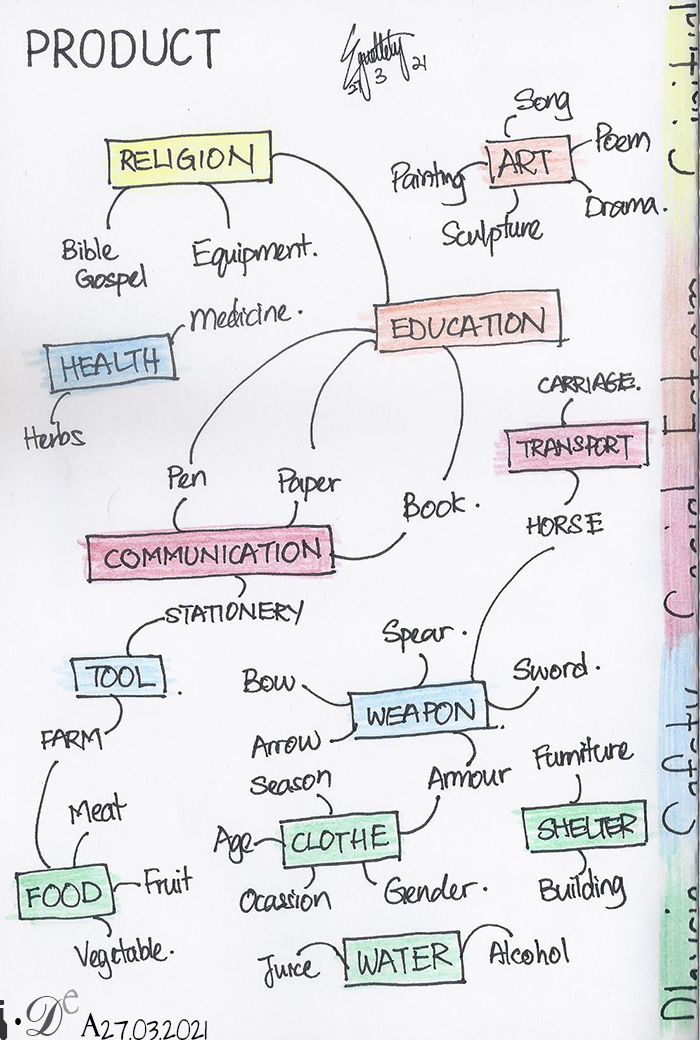 PRODUCT
27 3 21
Song
ART
Poem
Painting
Drama.
Sculpture
RELIGION
Bible
Gospel
Equipment.
Medicine.
HEALTH
Herbs
EDUCATION
CARRIAGE.
TRANSPORT
HORSE
Pen
Paper
Book.
COMMUNICATION
STATIONERY
TOOL.
FARM
Spear.
Bow
Sword.
WEAPON..
Arrow
Armour
Season
Age
CLOTHE
Ocassion
Gender.
Furniture
SHELTER
Building
Meat
FOOD
Fruit
Vegetable.
Juice
WATER
Alcohol
i.De A27.03.2021